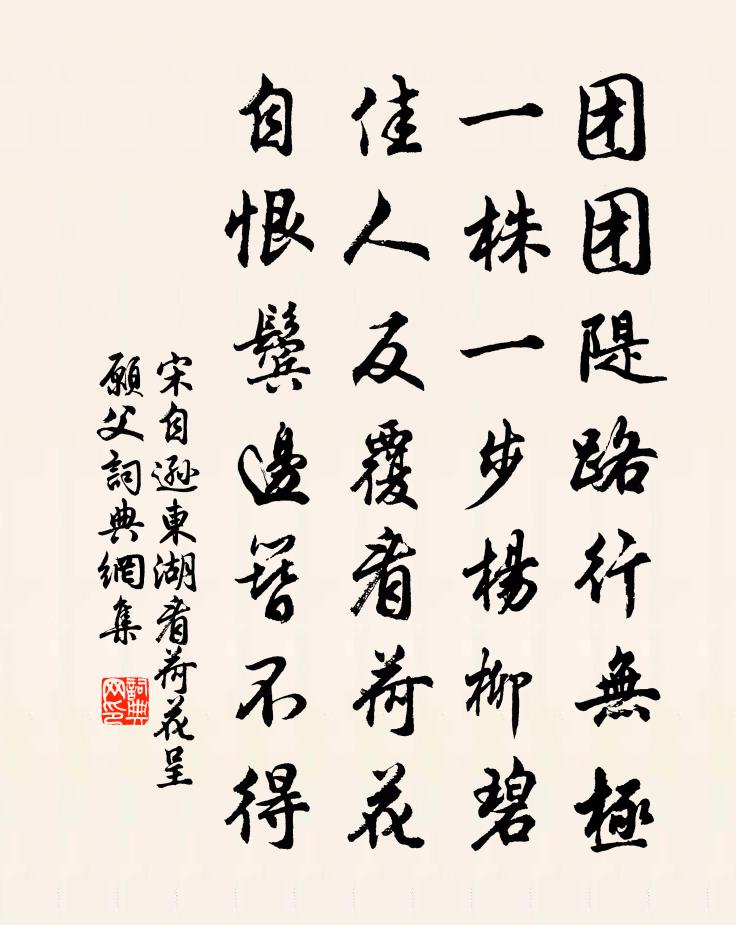 团团隄路行無極
一株一步楊柳碧
佳人反覆看荷花
自恨鬢邊簪不得
宋自遜東湖看荷花呈
願父詞典網集
詞典
网印